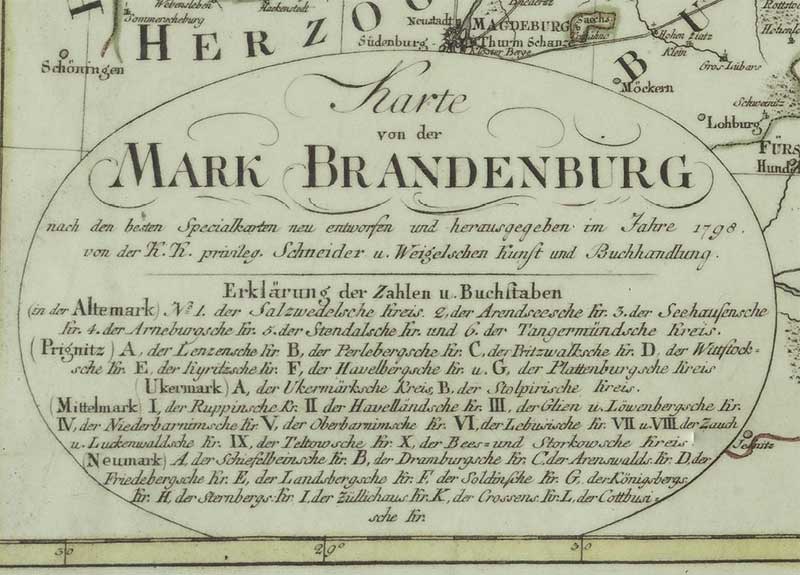 Webensleben
Sommerscheburg
Hackenstedt
HERZO
BU
Neustadt
MAGDEBURG
Südenburg
Thurm Schanze
Kloster Berge
Biederitz
Hohen Ziatz
Klein
Gros Lübars
Schöningen
Möckern
Schweinitz
Lohburg
FÜRS
Hund
Karte
von der
MARK BRANDENBURG
nach den besten Specialkarten neu entworfen und herausgegeben im Jahre 1798.
von der K. K. privileg. Schneider u. Weigelschen Kunst und Buchhandlung.
Erklärung der Zahlen u. Buchstaben
(in der Altemark) No. 1. der Salzwedelsche Kreis. 2, der Arendseesche Kr. 3. der Seehausensche
Kr. 4. der Arneburgsche Kr. 5. der Stendalsche Kr. und 6. der Tangermündsche Kreis.
(Prignitz) A, der Lenzensche Kr. B, der Perlebergsche Kr. C, der Pritzwalksche Kr. D, der Wittstock=
sche Kr. E, der Kyritzsche Kr. F, der Havelbergsche Kr. u. G, der Plattenburgsche Kreis
(Ukermark) A, der Ukermärksche Kreis, B, der Stolpirische Kreis.
(Mittelmark) I, der Ruppinsche Kr. II der Havelländsche Kr. III, der Glien u. Löwenbergsche Kr.
IV, der Niederbarnimsche Kr. V, der Oberbarnimsche Kr. VI, der Lebusische Kr. VII u. VIII, der Zauch
u. Luckenwaldsche Kr. IX, der Teltowsche Kr. X, der Bees= und Storkowsche Kreis
(Neumark) A, der Schiefelbeinsche Kr. B, der Dramburgsche Kr. C, der Arenswalds. Kr. D, der
Friedebergsche Kr. E, der Landsbergsche Kr. F. der Soldinsche Kr. G, der Königsbergs.
Kr. H, der Sternbergs. Kr. I, der Züllichaus. Kr. K, der Crossens. Kr. L, der Cottbusi=
sche Kr.
Jesnitz
30
29°
30